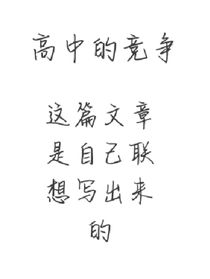 高中的竞争
这篇文章
是自己联
想写出来
的